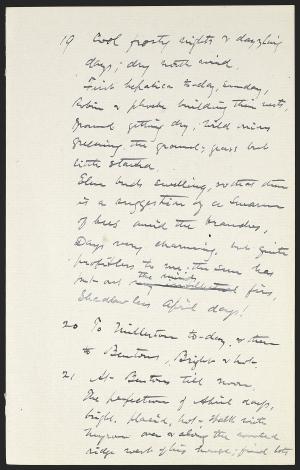 19 Cool frosty nights & dazzling
days; dry north wind.
First hepatica to-day, sunday,
Robin & phoebe building their nests,
Ground getting dry; wild vines
greening the ground; grass but
little started.
Elm buds swelling, so that there
is a suggestion of a swarm
of bees amid the branches,
Days very charming, but quite
profitless to me; the sun has
put out the mind's fires,
Shadowless April days!
20 To Millerton to-day, & then
to Bentons, Bright & hot.
21 At Bentons till noon.
The perfection of April days,
bright, placid, hot - walk with
Myron over & along the wooded
ridge west of his house; find both